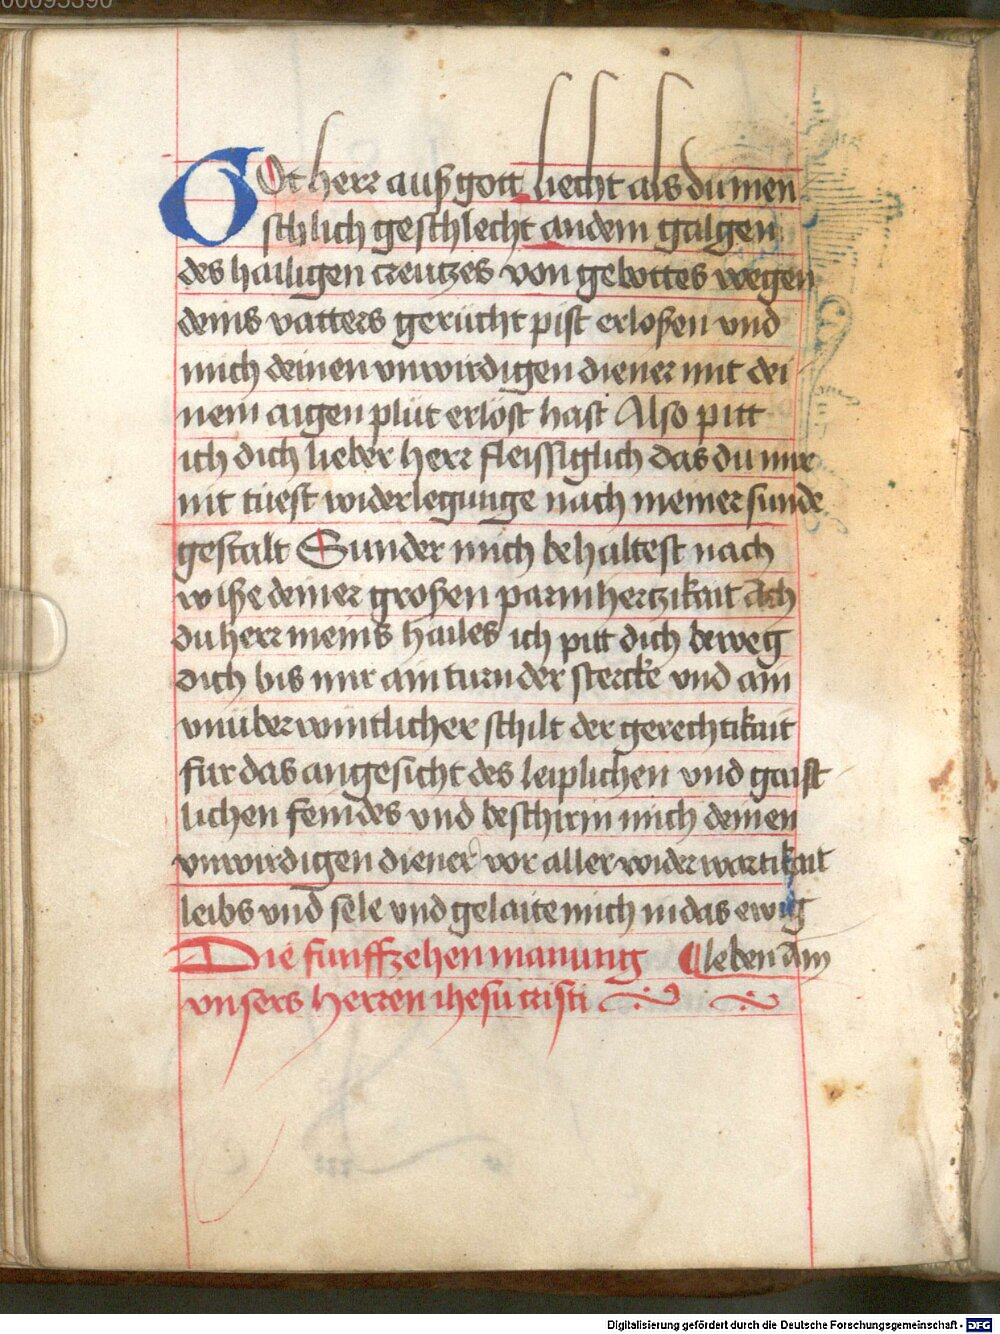 00095390
Got herr auß gott liecht als du men
schlich geschlecht an dem galgen
des hailigen creutzes von gebottes wegen
deins vatters gerücht pist erlosen und
mich deinen unwirdigen diener mit dei
nem aigen plut erlöst hast Also pitt
ich dich lieber herr fleissiglich das du mir
nit tüest widerlegunge nach meiner sunde
gestalt Sunder mich behaltest nach
wise deiner großen parmhertzikait Ach
du herr meins hailes ich pitt dich beweg
dich bis mir am turn der stercke und am
unüberwintlicher schilt der gerechtikait
für das angesicht des leiplichen und gaist
lichen feindes und beschirm mich deinen
unwirdigen diener vor aller widerwartikait
leibs und sele und gelaite mich in das ewig
Die funffzehen manung ¶ leben Am
unsers herren ihesu cristi
Digitalisierung gefördert durch die Deutsche Forschungsgemeinschaft - DFG